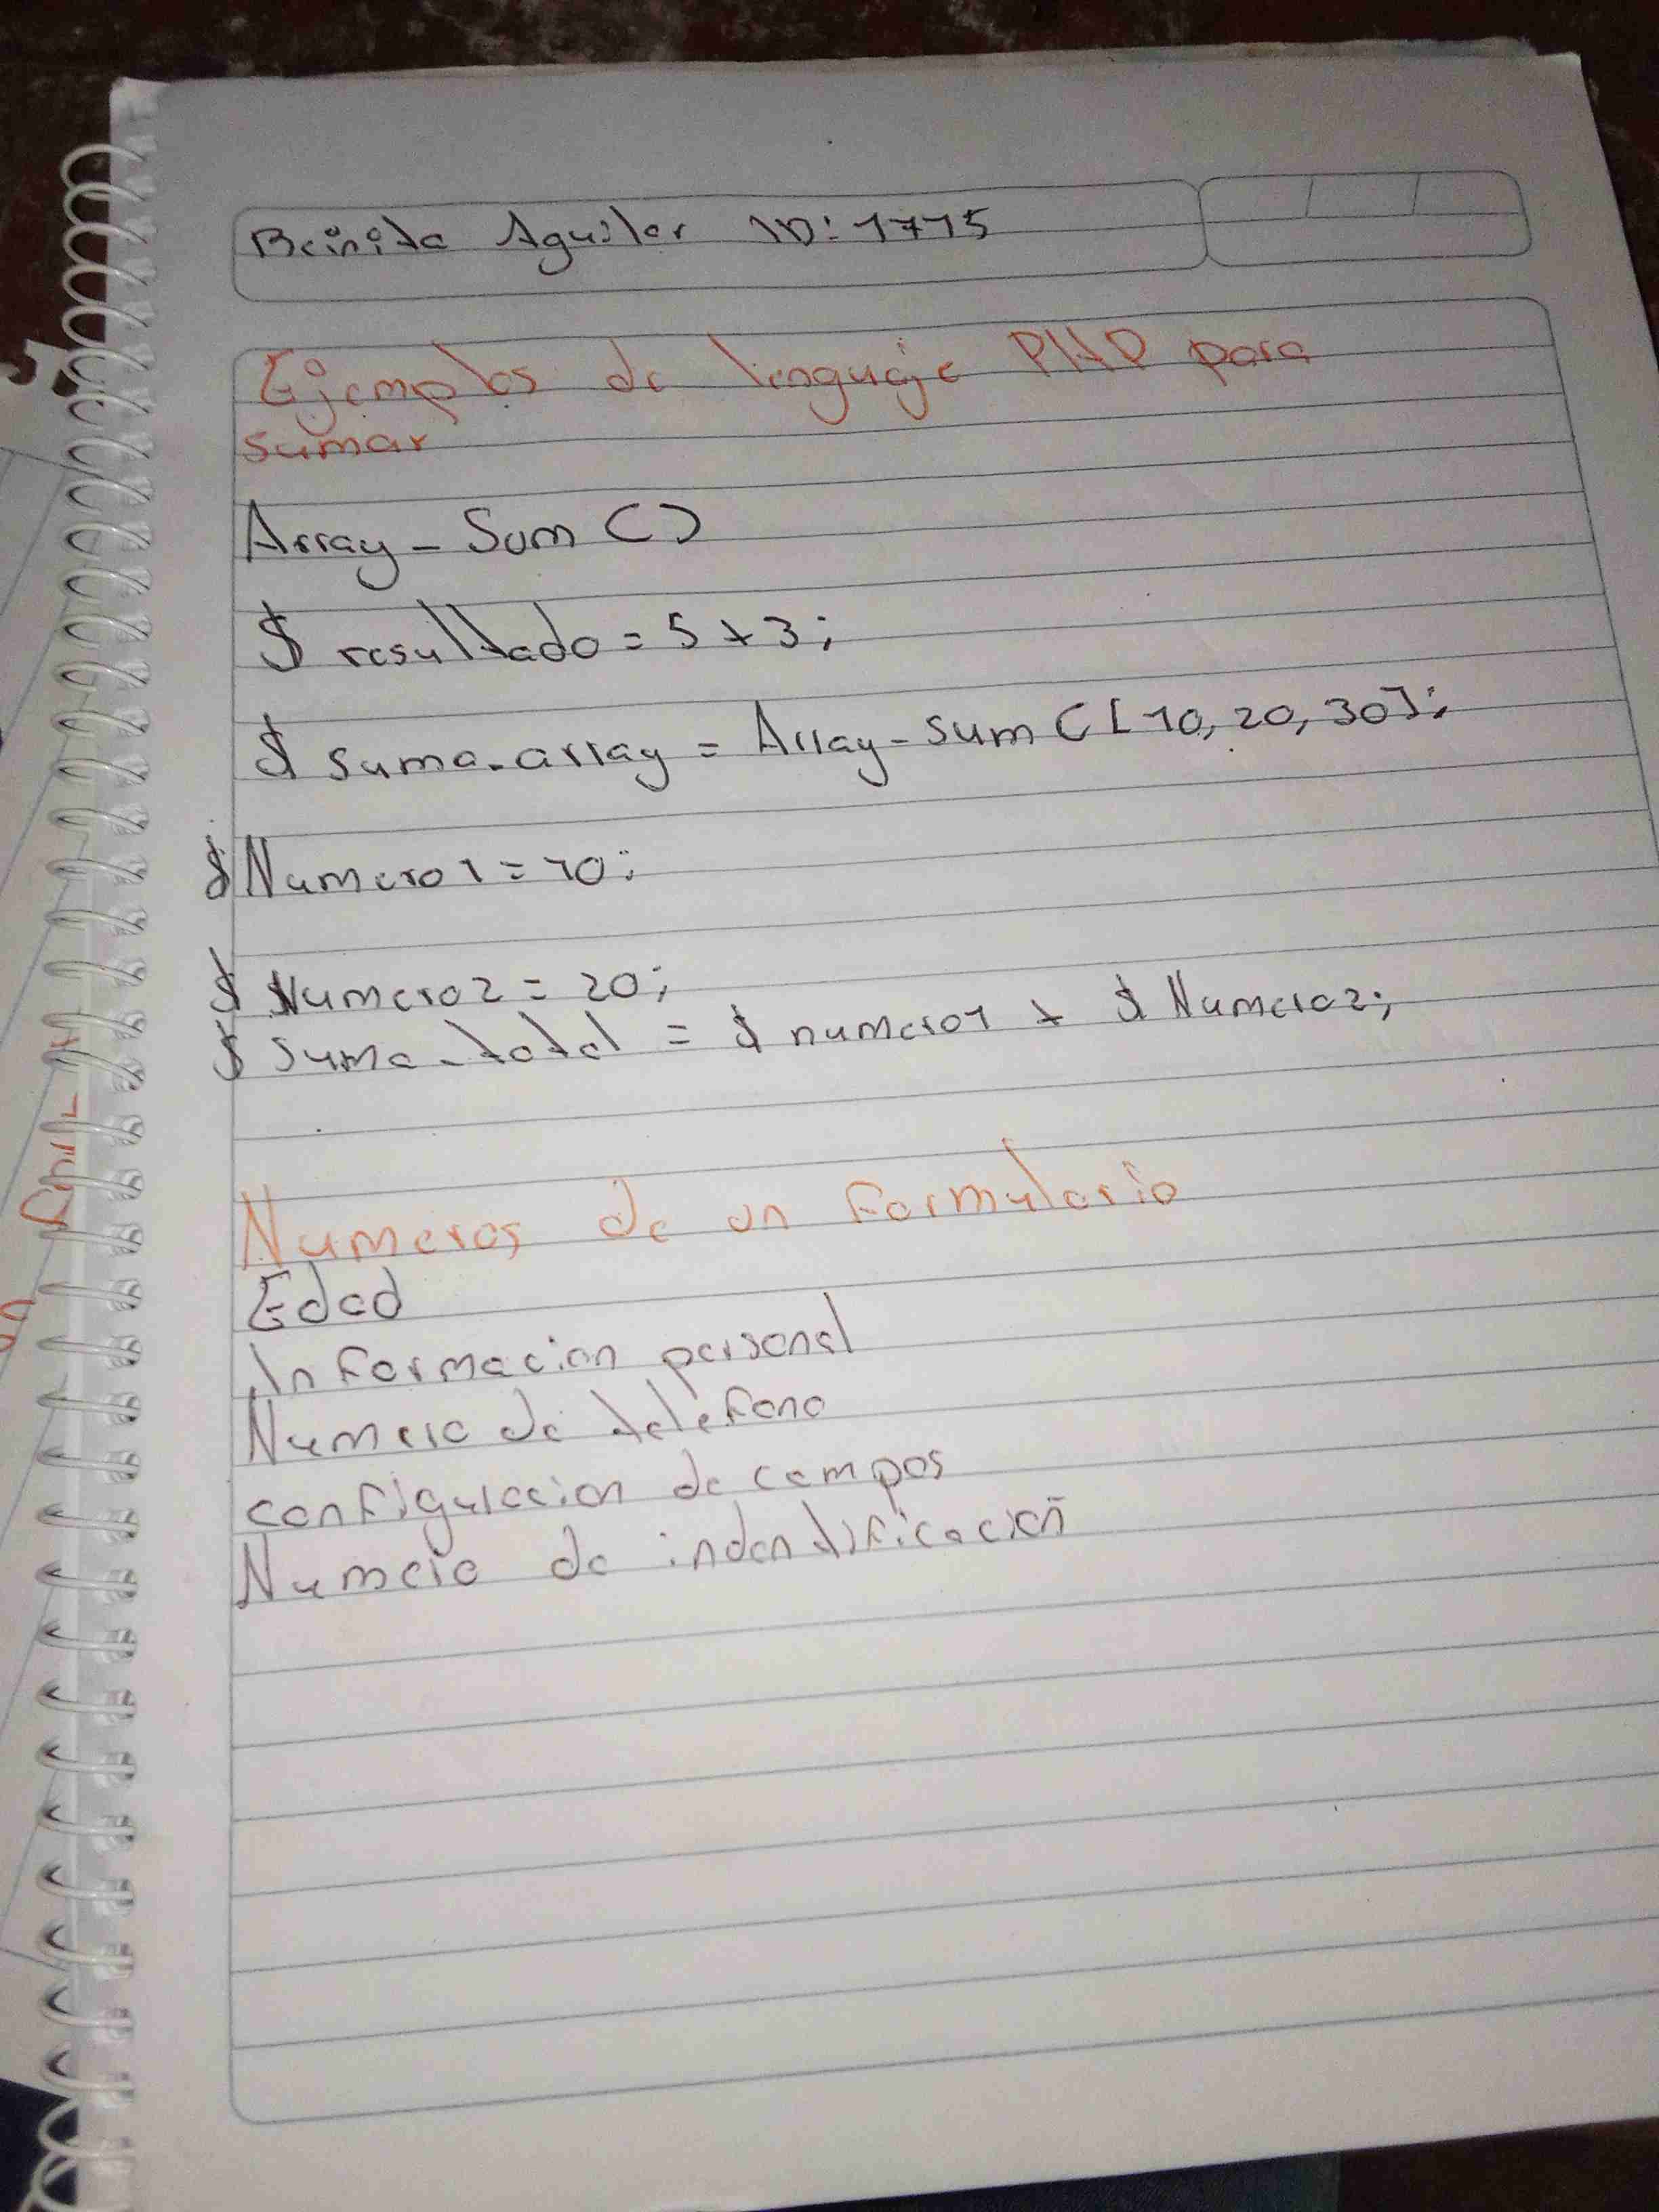 Beinita Aguilar ID: 1775
Ejemplos de lenguaje PHP para
sumar
Array - Sum ()
$ resultado = 5 + 3;
$ suma-array = Array - sum ( [10, 20, 30];
$ Numero1 = 10;
$ Numero2 = 20;
$ suma-total = $ numero1 + $ Numero2;
Numeros de un formulario
Edad
Informacion personal
Numero de teléfono
configuracion de campos
Numero de indentificacion